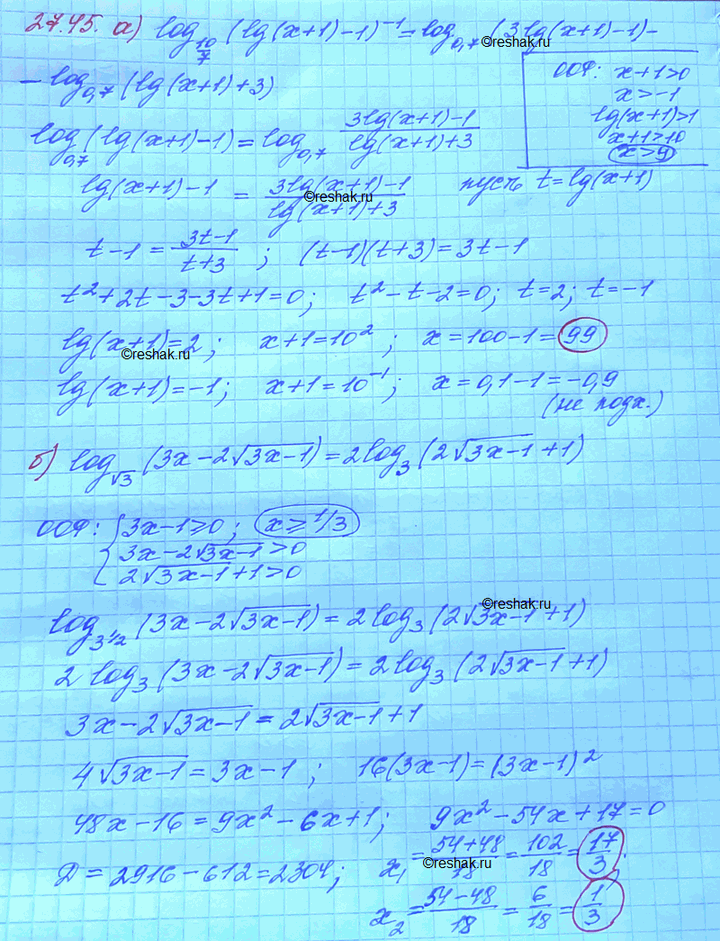 27.45. а) log_{10/7} (lg(x+1)-1)^{-1} = log_{0,7} (3lg(x+1)-1)-
©reshak.ru
- log_{0,7} (lg(x+1)+3)
ООФ: x+1>0
x>-1
lg(x+1)>1
x+1>10
x>9
log_{0,7} (lg(x+1)-1) = log_{0,7} \frac{3lg(x+1)-1}{lg(x+1)+3}
lg(x+1)-1 = \frac{3lg(x+1)-1}{lg(x+1)+3} пусть t=lg(x+1)
©reshak.ru
t-1 = \frac{3t-1}{t+3} ; (t-1)(t+3)=3t-1
t²+2t-3-3t+1=0; t²-t-2=0; t=2; t=-1
lg(x+1)=2; x+1=10²; x=100-1=99
©reshak.ru
lg(x+1)=-1; x+1=10^{-1}; x=0,1-1=-0,9
(не подх.)
б) log_{√3} (3x-2√(3x-1)) = 2log_3 (2√(3x-1)+1)
ООФ: { 3x-1≥0; x≥1/3
3x-2√(3x-1)>0
2√(3x-1)+1>0
©reshak.ru
log_{3^{1/2}} (3x-2√(3x-1)) = 2log_3 (2√(3x-1)+1)
2 log_3 (3x-2√(3x-1)) = 2log_3 (2√(3x-1)+1)
3x-2√(3x-1) = 2√(3x-1)+1
4√(3x-1) = 3x-1 ; 16(3x-1)=(3x-1)²
48x-16=9x²-6x+1; 9x²-54x+17=0
Д=2916-612=2304; x₁=\frac{54+48}{18}=\frac{102}{18}=\frac{17}{3};
©reshak.ru
x₂=\frac{54-48}{18}=\frac{6}{18}=\frac{1}{3}